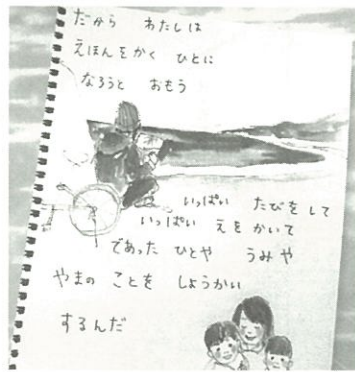 だから わたしは
えほんをかく ひとに
なろうと おもう
いっぱい たびをして
いっぱい えをかいて
であった ひとや うみや
やまの ことを しょうかい
するんだ